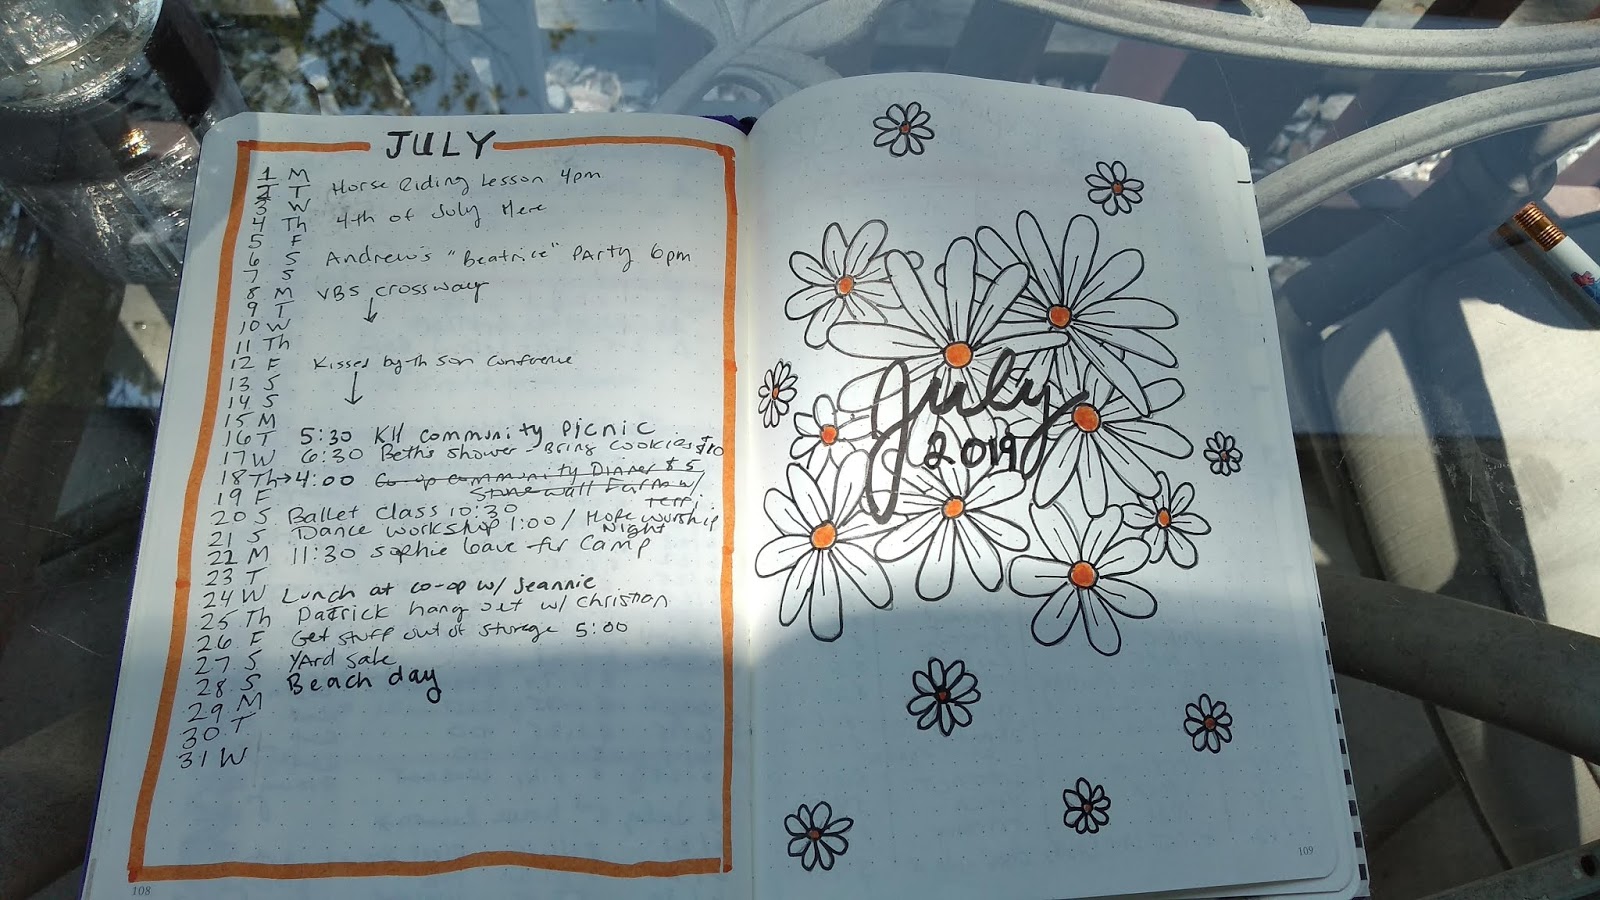 JULY
1 M
2 T Horse Riding Lesson 4pm
3 W
4 Th 4th of July Here
5 F
6 S Andrew's "Beatrice" PArty 6pm
7 S
8 M VBS crossway
9 T
10 W
11 Th
12 F Kissed by th Son conference
13 S
14 S
15 M
16 T 5:30 KH community picnic
17 W 6:30 Beth's shower - Bring cookies $10
18 Th→4:00 Co-op community Dinner $5
Stonewall Farm w/
Terri
19 F
20 S Ballet class 10:30
21 S Dance workshop 1:00 / Hope Worship
Night
22 M 11:30 Sophie leave for camp
23 T
24 W Lunch at co-op w/ Jeannie
25 Th Patrick hang out w/ Christian
26 F Get stuff out of storage 5:00
27 S YArd sale
28 S Beach day
29 M
30 T
31 W
108
July
2019
109